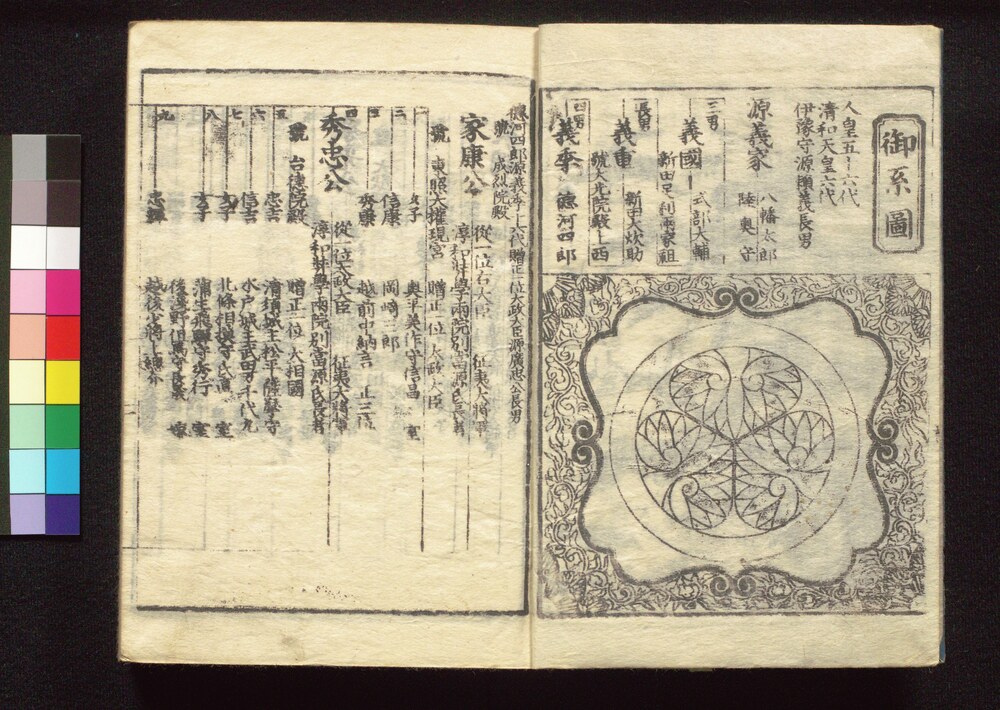 御系圖
人皇五十六代
清和天皇六代
伊豫守源頼義長男
源義家
八幡太郎
陸奥守
三男
義國
式部大輔
新田足利兩家祖
長男
義重
新田大炊助
號大光院殿十西
四男
義季
德河四郎
德河四郎源義季十六代贈正一位太政大臣源廣忠公長男
號
成烈院殿
家康公
從一位右大臣
征夷大將軍
淳和弉學兩院別當源氏長者
號
東照大權現宮
贈正一位
太政大臣
女子
奥平美作守信昌
室
二
信康
岡崎三郎
三
秀康
越前中納言
正三位
四
秀忠公
從一位太政大臣
征夷大將軍
淳和弉學兩院別當源氏長者
號
台德院殿
贈正一位
大相國
五
忠吉
清須城主松平薩摩守
六
信吉
水戸城主武田万千代丸
七
女子
北條相模守氏直
室
八
女子
蒲生飛驒守秀行
室
後淺野但馬守長晟
嫁
九
忠輝
越後少將上總介